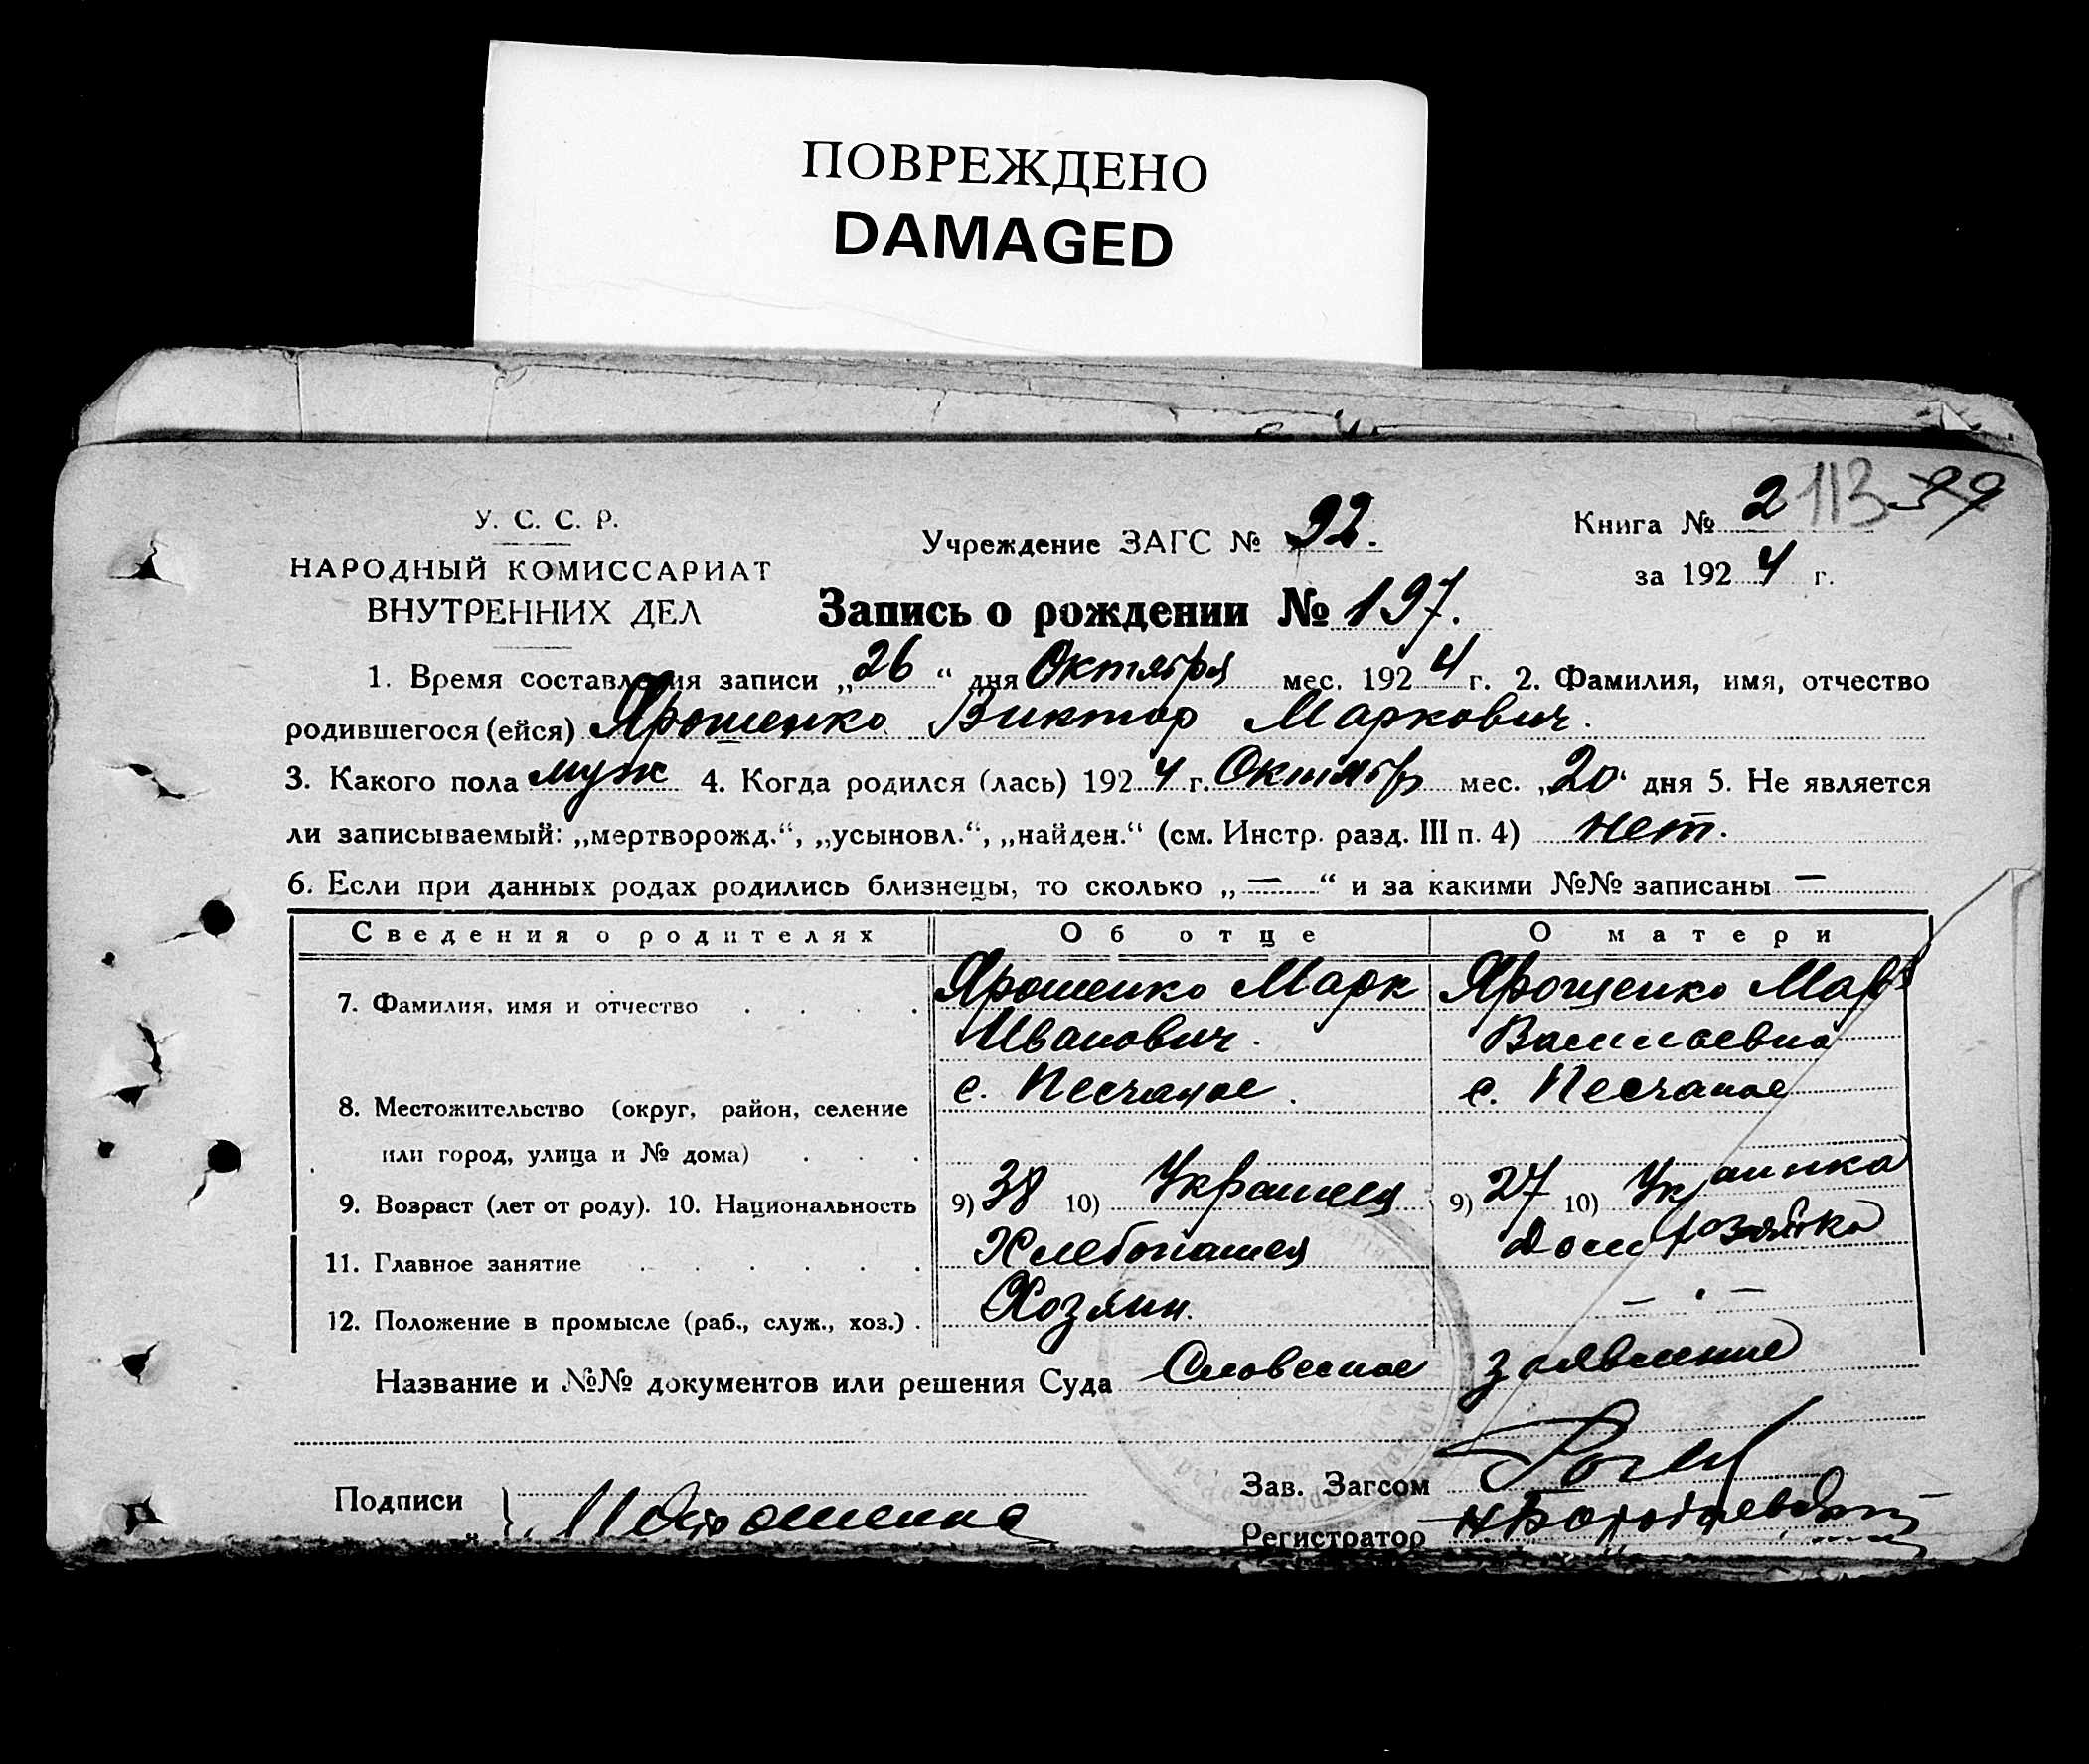 ПОВРЕЖДЕНО
DAMAGED
Книга № 2 113 39
У. С. С. Р.
Учреждение ЗАГС № 92.
за 1924 г.
НАРОДНЫЙ КОМИССАРИАТ
ВНУТРЕННИХ ДЕЛ
Запись о рождении № 197.
1. Время составления записи „26“ дня Октября мес. 1924 г. 2. Фамилия, имя, отчество
родившегося (ейся) Ярошенко Виктор Маркович.
3. Какого пола муж 4. Когда родился (лась) 1924 г. Октябр мес. „20“ дня 5. Не является
ли записываемый: „мертворожд.“, „усыновл.“, „найден.“ (см. Инстр. разд. III п. 4) нет.
6. Если при данных родах родились близнецы, то сколько „—“ и за какими №№ записаны —
Сведения о родителях Об отце О матери
7. Фамилия, имя и отчество Ярошенко Марк Ярошенко
Иванович. Васильевна
с. Песчаное. с. Песчаное
8. Местожительство (округ, район, селение
или город, улица и № дома)
9. Возраст (лет от роду). 10. Национальность 9) 38 10) Украинец 9) 27 10) Украинка
11. Главное занятие Хлебопашец Домхозяйка
12. Положение в промысле (раб., служ., хоз.) Хозяин. — . —
Название и №№ документов или решения Суда Словесное заявление
Зав. Загсом
Подписи
Регистратор